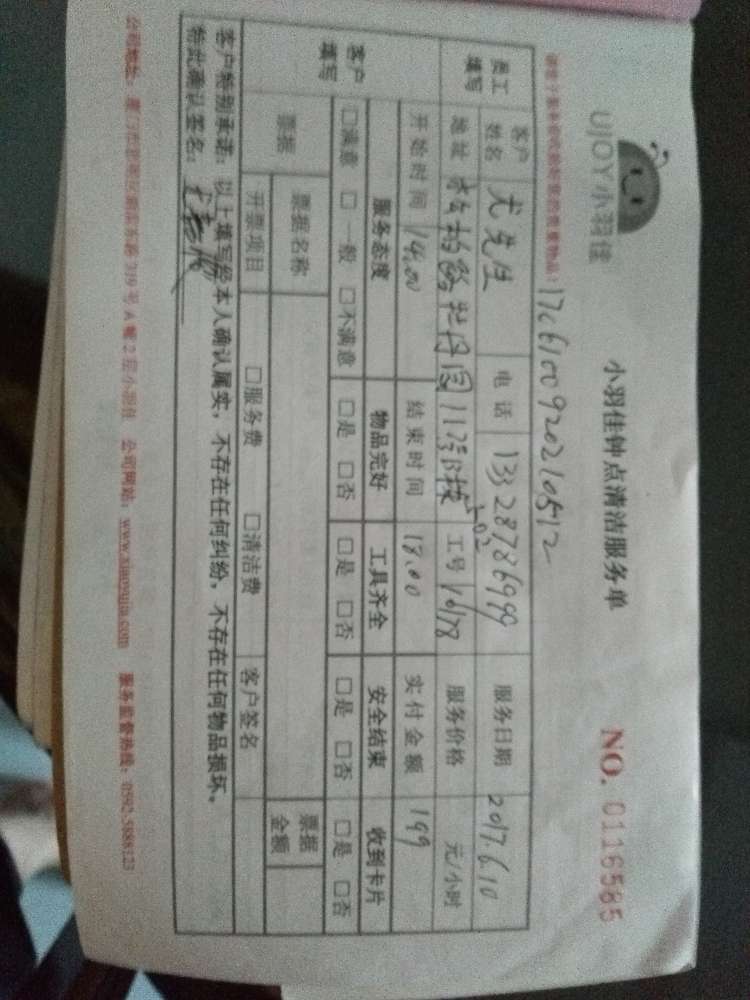 UJOY小羽佳
小羽佳钟点清洁服务单
NO. 0116585
1706100920210512
员工填写
客户姓名 尤先生 电话 13328786999 服务日期 2017.6.10
地址 牡丹园11号 工号 服务价格 元/小时
开始时间 14:00 结束时间 18:00 实付金额 199
客户填写
服务态度 物品完好 工具齐全 安全结束 收到卡片
□满意 □一般 □不满意 □是 □否 □是 □否 □是 □否 □是 □否
票据 票据名称 票据金额
开票项目 □服务费 □清洁费 客户签名
客户特别承诺:以上填写经本人确认属实,不存在任何纠纷,不存在任何物品损坏。
特此确认签名:
公司地址: 319号A幢2层小羽佳 公司网站:www.xiaoyujia.com 服务监督热线:0592-5888123